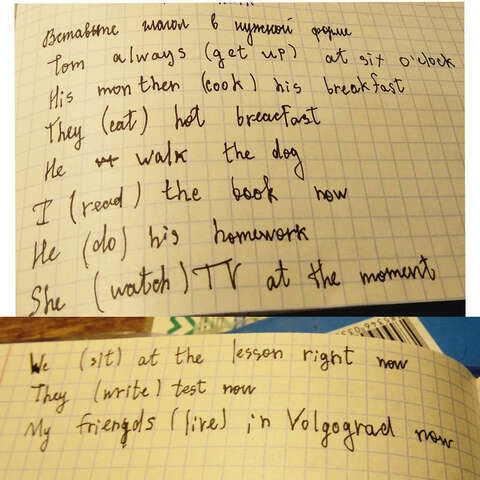 Вставьте глагол в нужной форме
Tom always (get up) at six o'clock
His monther (cook) his breakfast
They (eat) hot breacfast
He walk the dog
I (read) the book now
He (do) his homework
She (watch) TV at the moment
We (sit) at the lesson right now
They (write) test now
My friends (live) in Volgograd now